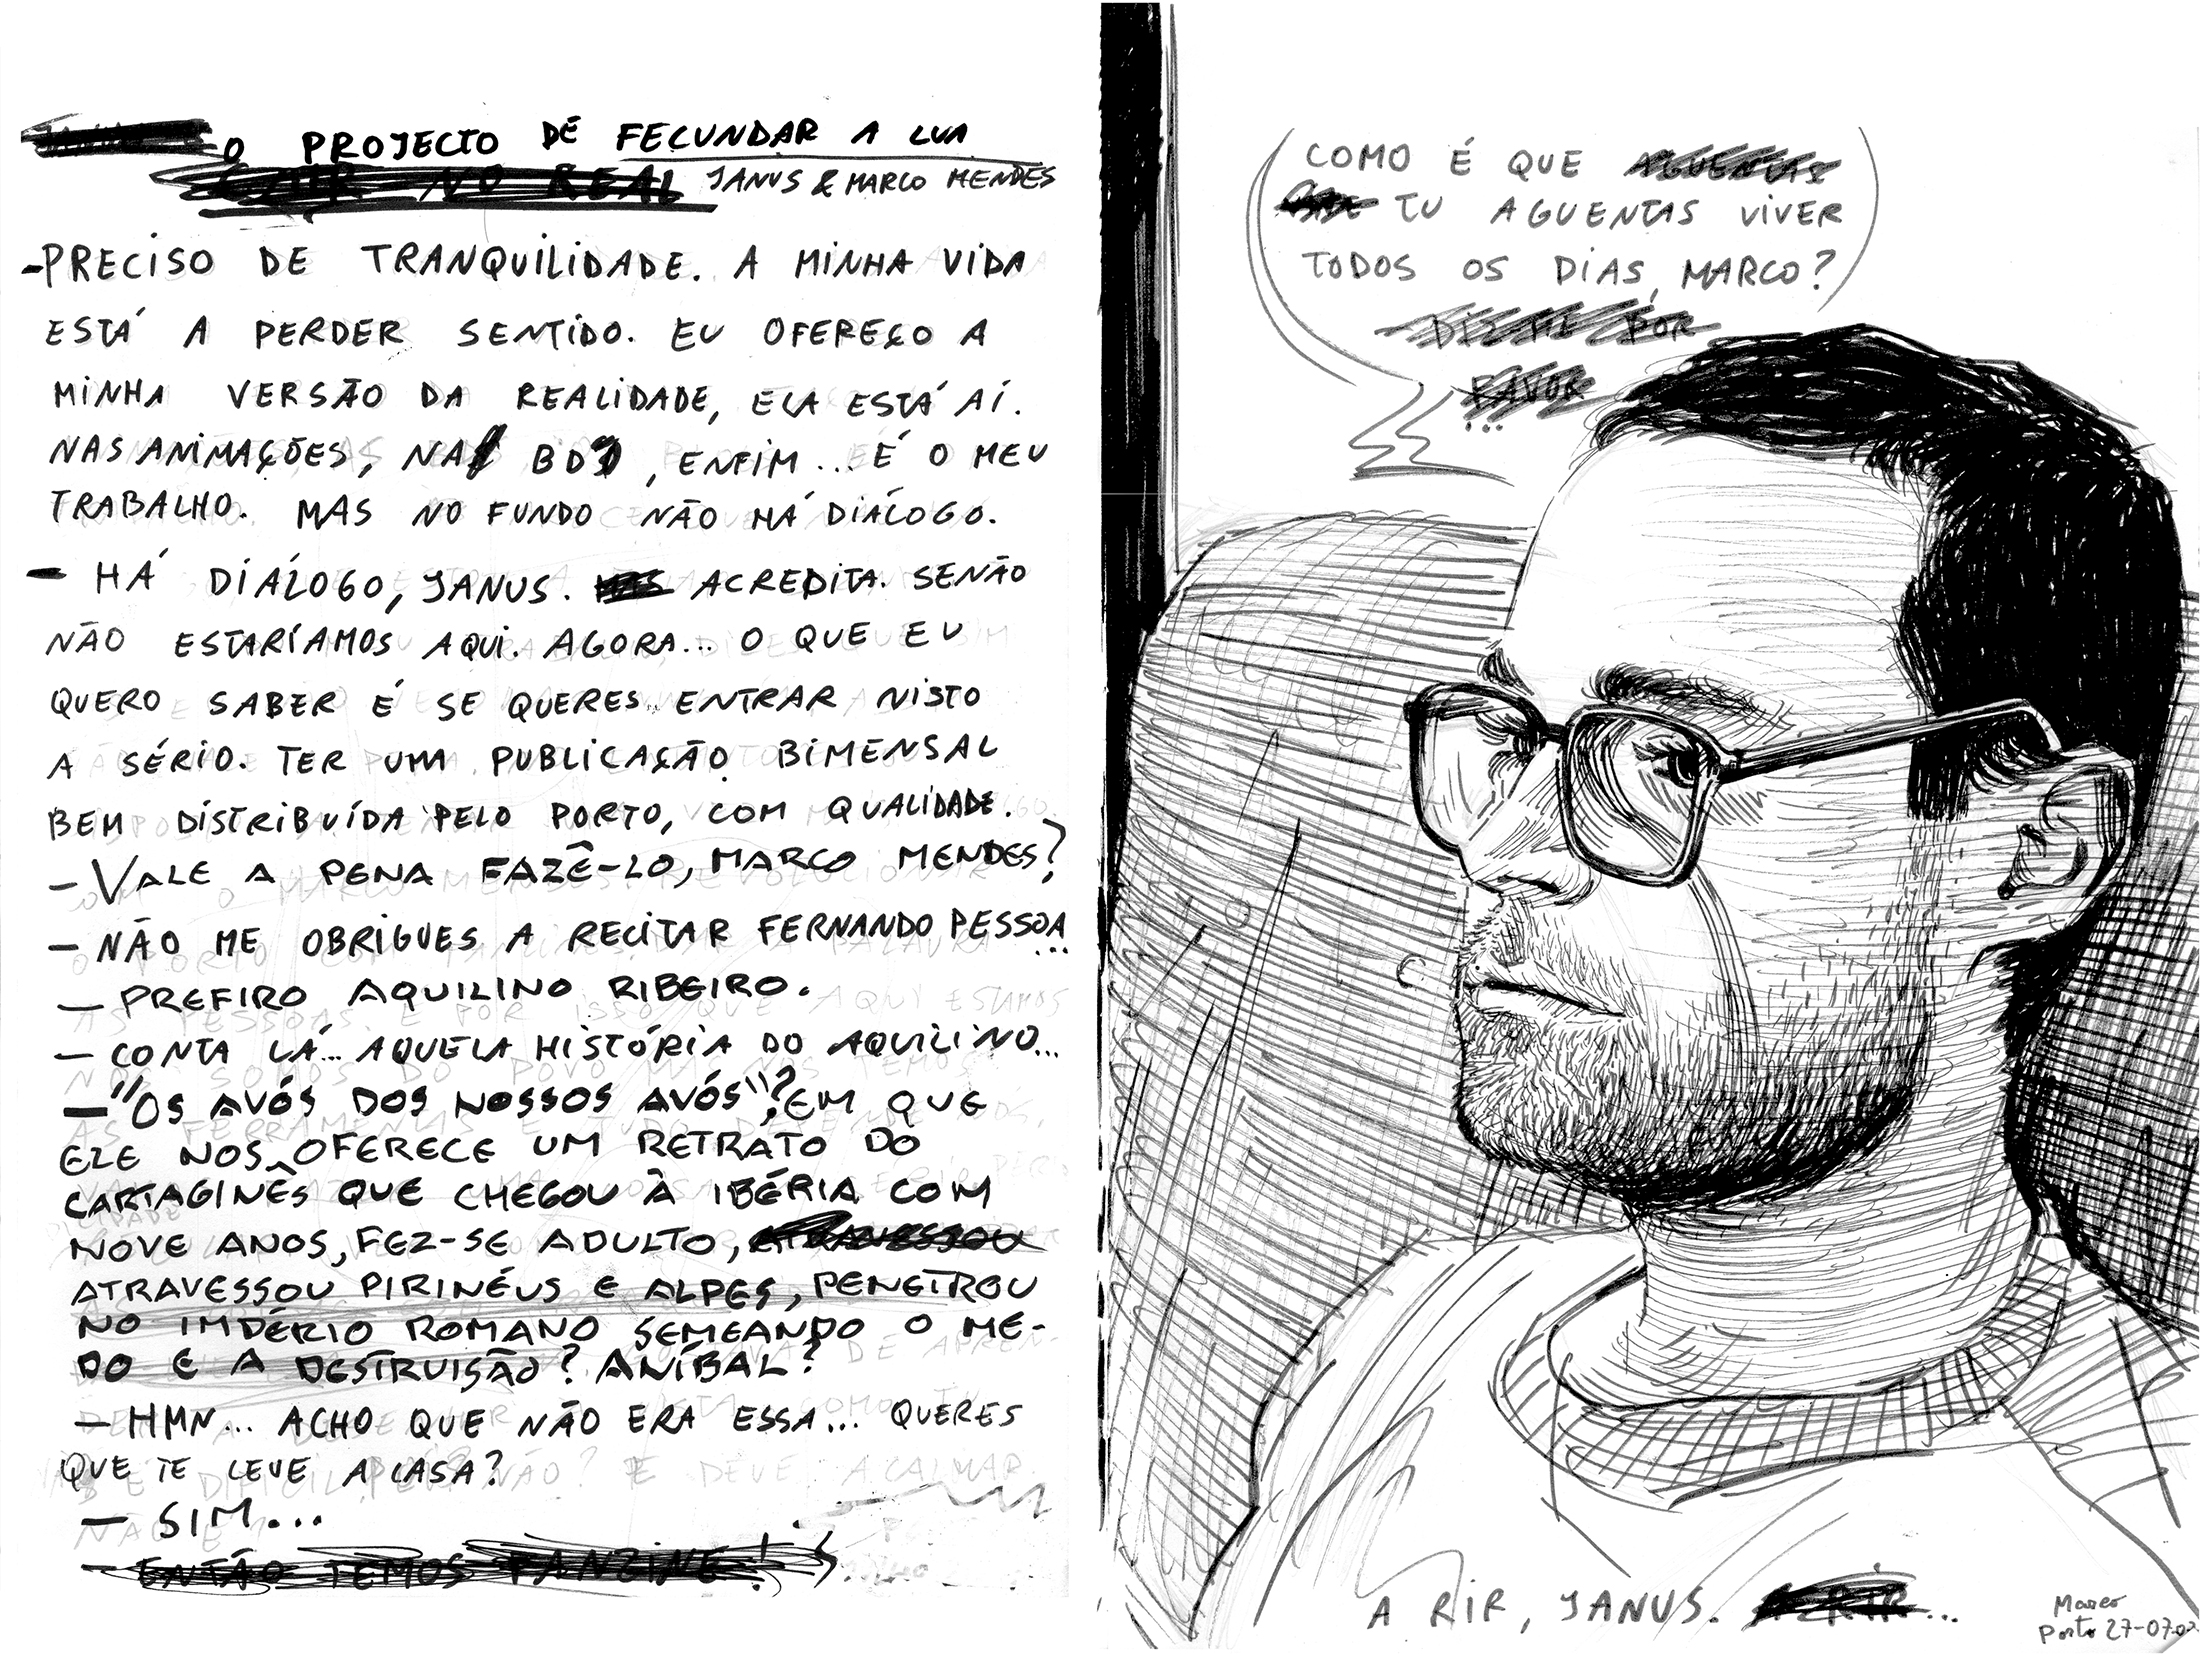 O PROJECTO DE FECUNDAR A LUA
CAIR NO REAL JANUS & MARCO MENDES
-PRECISO DE TRANQUILIDADE. A MINHA VIDA
ESTÁ A PERDER SENTIDO. EU OFEREÇO A
MINHA VERSÃO DA REALIDADE, ELA ESTÁ AÍ.
NAS ANIMAÇÕES, NA BD, ENFIM... É O MEU
TRABALHO. MAS NO FUNDO NÃO HÁ DIÁLOGO.
- HÁ DIÁLOGO, JANUS. ACREDITA. SENÃO
NÃO ESTARÍAMOS AQUI. AGORA... O QUE EU
QUERO SABER É SE QUERES ENTRAR NISTO
A SÉRIO. TER UMA PUBLICAÇÃO BIMENSAL
BEM DISTRIBUÍDA PELO PORTO, COM QUALIDADE.
- VALE A PENA FAZÊ-LO, MARCO MENDES?
- NÃO ME OBRIGUES A RECITAR FERNANDO PESSOA...
- PREFIRO AQUILINO RIBEIRO.
- CONTA LÁ... AQUELA HISTÓRIA DO AQUILINO...
- "OS AVÓS DOS NOSSOS AVÓS"? EM QUE
ELE NOS OFERECE UM RETRATO DO
CARTAGINÊS QUE CHEGOU À IBÉRIA COM
NOVE ANOS, FEZ-SE ADULTO, ATRAVESSOU
ATRAVESSOU PIRINÉUS E ALPES, PENETROU
NO IMPÉRIO ROMANO SEMEANDO O ME-
DO E A DESTRUIÇÃO? ANÍBAL?
- HMN... ACHO QUE NÃO ERA ESSA... QUERES
QUE TE LEVE A CASA?
- SIM...
- ENTÃO TEMOS FANZINE!
COMO É QUE AGUENTAS
TU AGUENTAS VIVER
TODOS OS DIAS, MARCO?
DIZ-ME POR
FAVOR
...
A RIR, JANUS. A RIR...
Marco
Porto 27-07-02